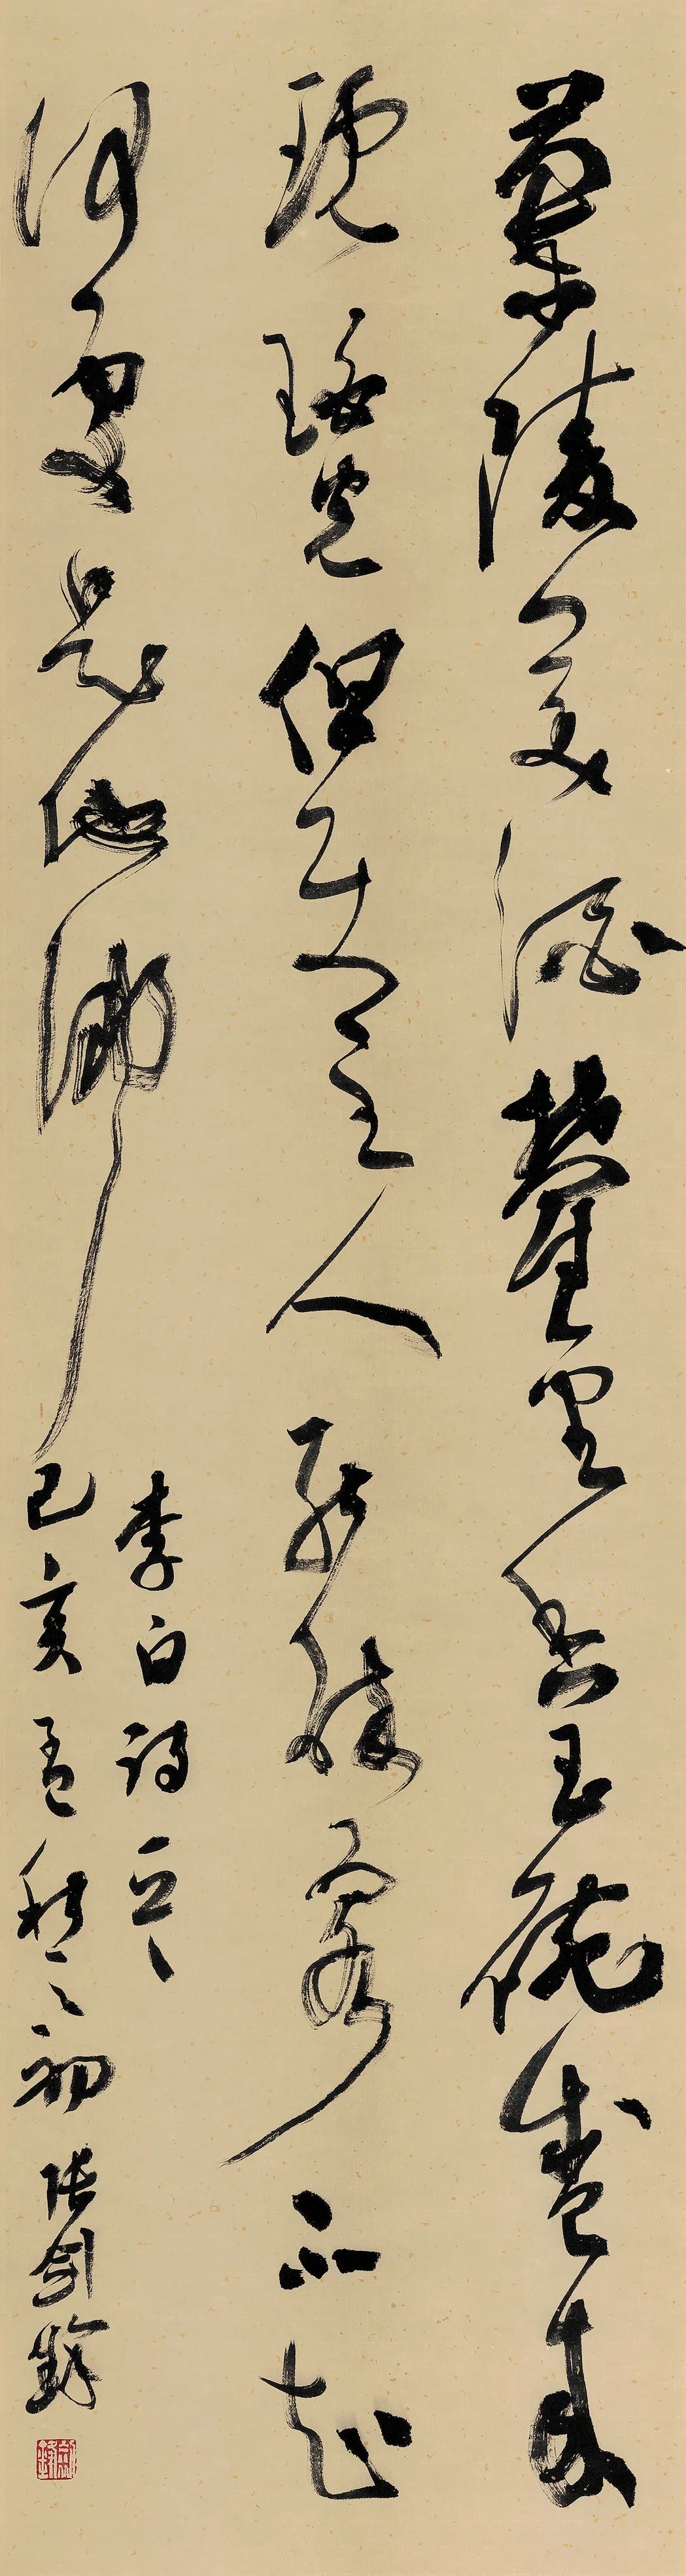 蘭陵美酒鬱金香玉碗盛來
琥珀光但使主人能醉客不知
何處是他鄉
李白詩一首
己亥孟秋之初張劍鋒